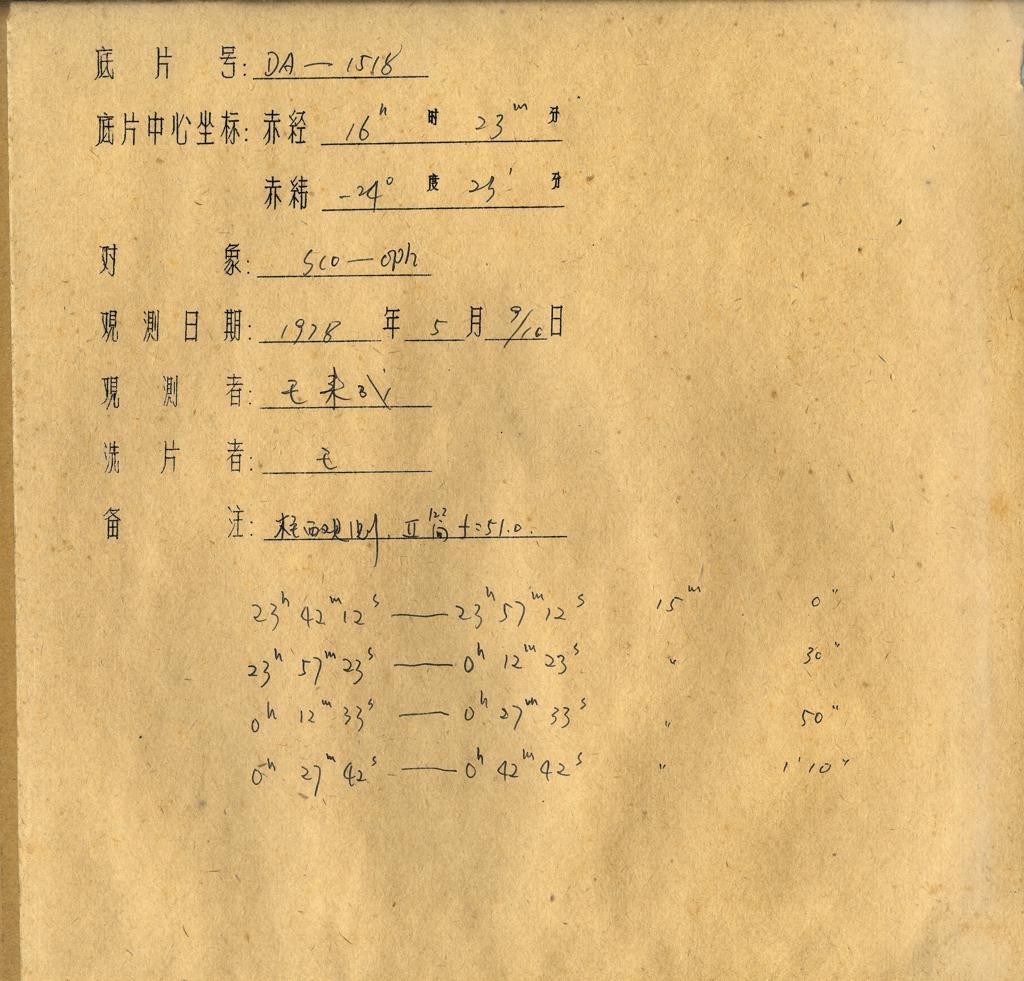 底片号: DA—1518
底片中心坐标: 赤经 16ʰ 时 23ᵐ 分
赤纬 -24° 度 25′ 分
对象: Sco—oph
观测日期: 1978 年 5 月 9/10 日
观测者: 毛
洗片者: 毛
备注: 西观测. II筒 f=51.0.
23ʰ 42ᵐ 12ˢ —— 23ʰ 57ᵐ 12ˢ 15ᵐ 0″
23ʰ 57ᵐ 23ˢ —— 0ʰ 12ᵐ 23ˢ 〃 30″
0ʰ 12ᵐ 33ˢ —— 0ʰ 27ᵐ 33ˢ 〃 50″
0ʰ 27ᵐ 42ˢ —— 0ʰ 42ᵐ 42ˢ 〃 1′10″